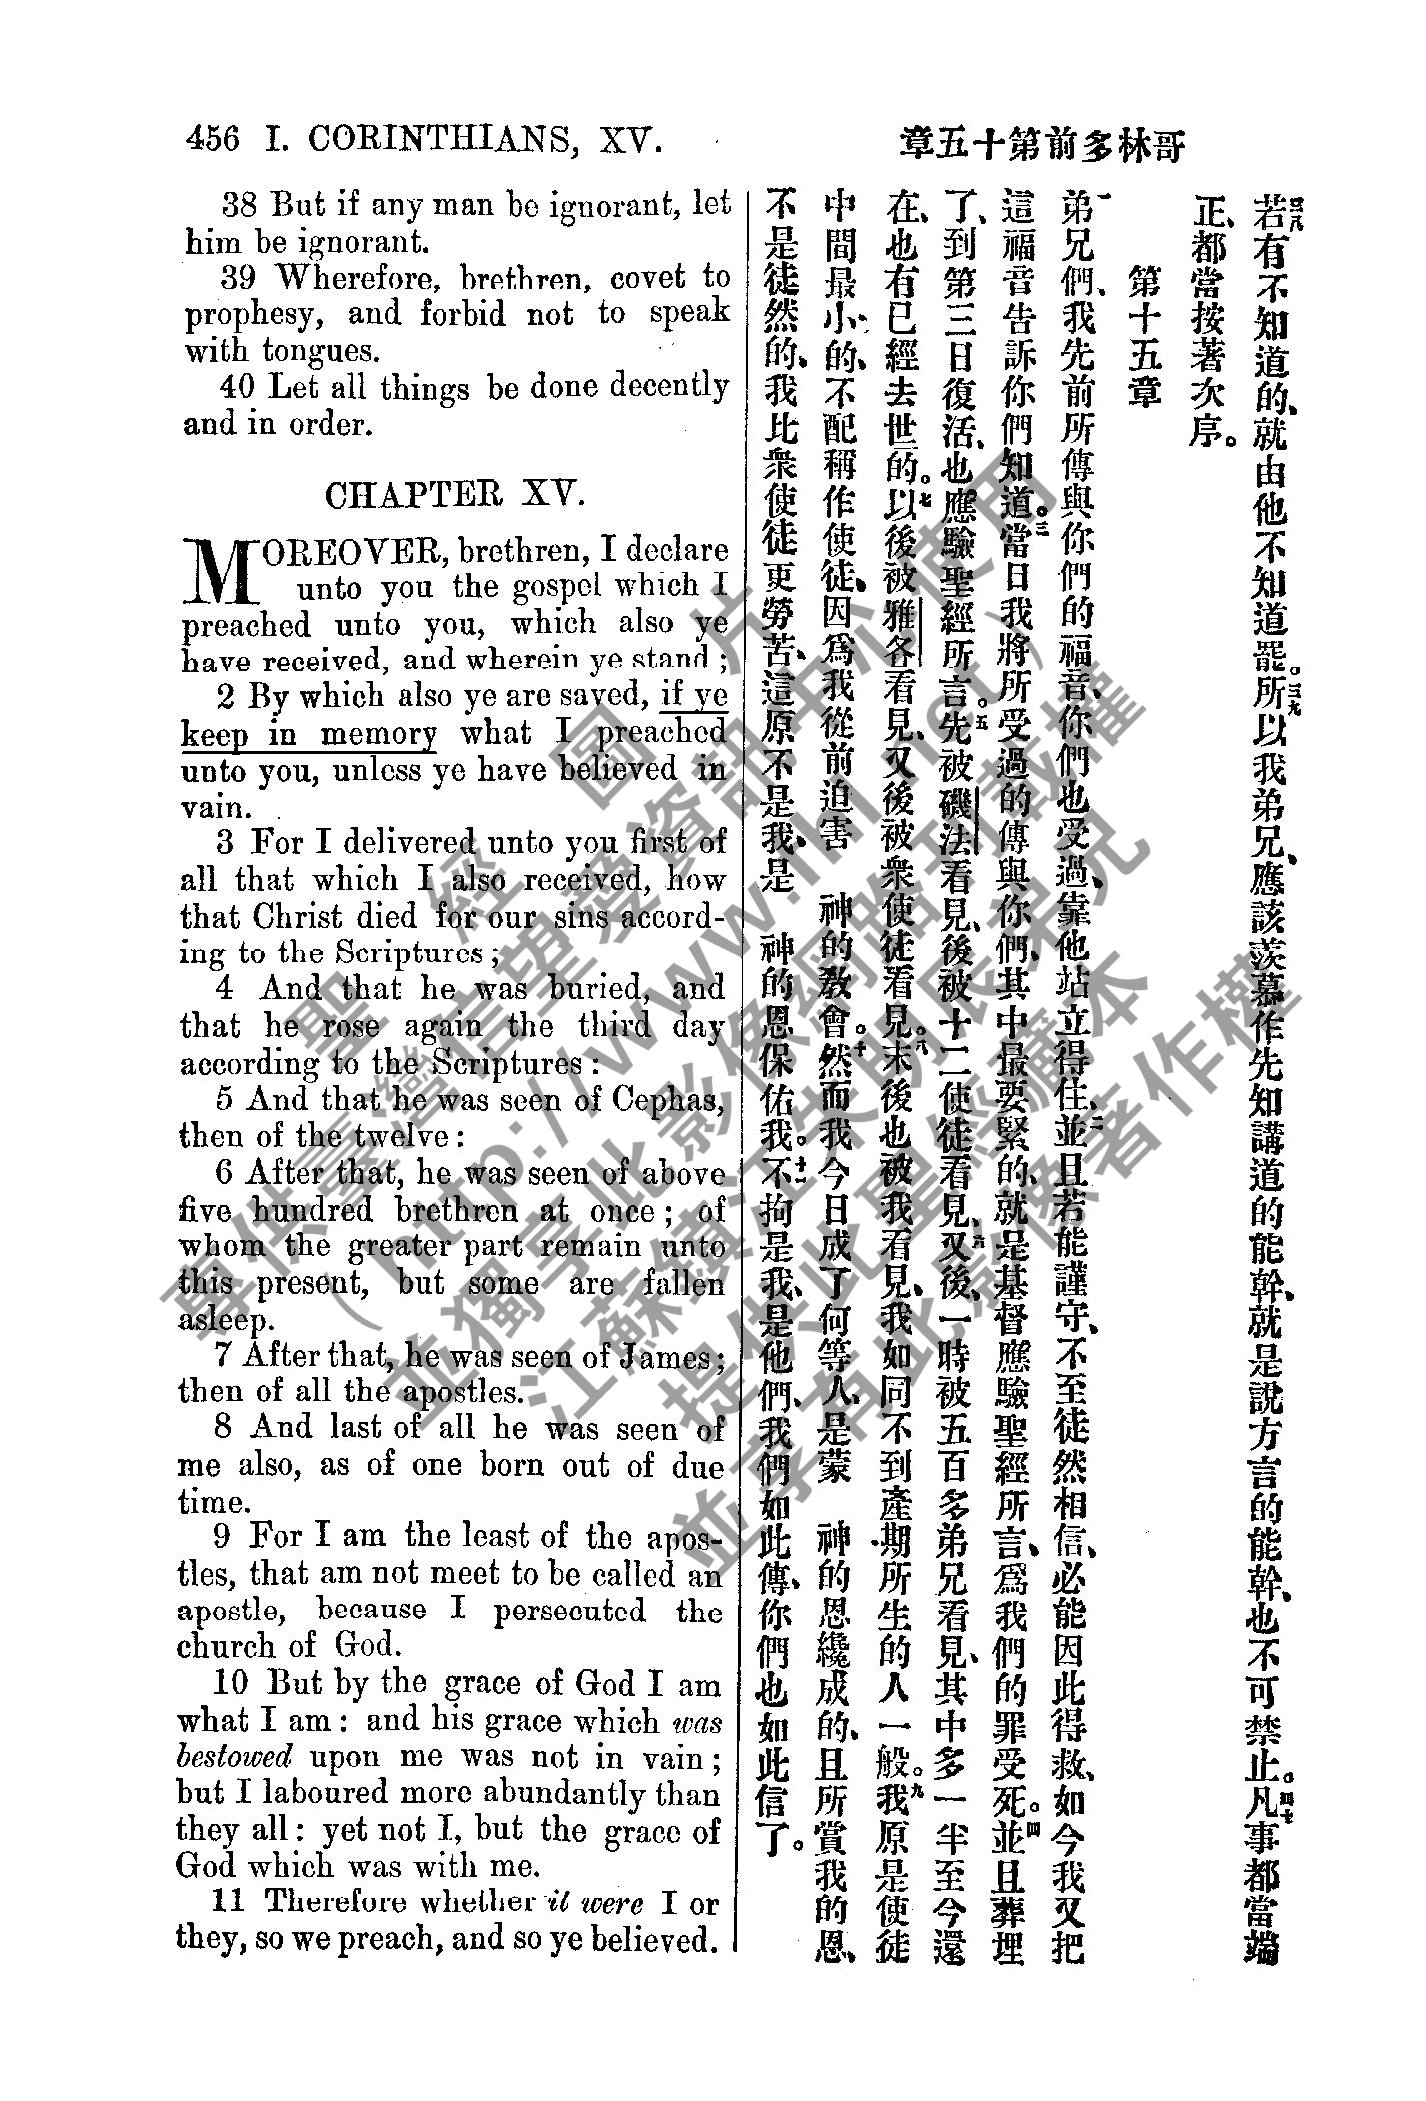 456 I. CORINTHIANS, XV.
哥林多前第十五章
38 But if any man be ignorant, let
him be ignorant.
39 Wherefore, brethren, covet to
prophesy, and forbid not to speak
with tongues.
40 Let all things be done decently
and in order.
CHAPTER XV.
MOREOVER, brethren, I declare
unto you the gospel which I
preached unto you, which also ye
have received, and wherein ye stand ;
2 By which also ye are saved, if ye
keep in memory what I preached
unto you, unless ye have believed in
vain.
3 For I delivered unto you first of
all that which I also received, how
that Christ died for our sins accord-
ing to the Scriptures ;
4 And that he was buried, and
that he rose again the third day
according to the Scriptures :
5 And that he was seen of Cephas,
then of the twelve :
6 After that, he was seen of above
five hundred brethren at once ; of
whom the greater part remain unto
this present, but some are fallen
asleep.
7 After that, he was seen of James ;
then of all the apostles.
8 And last of all he was seen of
me also, as of one born out of due
time.
9 For I am the least of the apos-
tles, that am not meet to be called an
apostle, because I persecuted the
church of God.
10 But by the grace of God I am
what I am : and his grace which was
bestowed upon me was not in vain ;
but I laboured more abundantly than
they all : yet not I, but the grace of
God which was with me.
11 Therefore whether it were I or
they, so we preach, and so ye believed.
若有不知道的、就由他不知道罷。三九所以我弟兄、應該羨慕作先知講道的能幹、就是說方言的能幹、也不可禁止。四十凡事都當端
正、都當按著次序。
第十五章
一弟兄們、我先前所傳與你們的福音、你們也受過、靠他站立得住、二並且若能謹守、不至徒然相信、必能因此得救、如今我又把
這福音告訴你們知道。三當日我將所受過的傳與你們、其中最要緊的、就是基督應驗聖經所言、爲我們的罪受死。四並且葬埋
了、到第三日復活、也應驗聖經所言。五先被磯法看見、後被十二使徒看見、六又後、一時被五百多弟兄看見、其中多一半至今還
在、也有已經去世的。七以後被雅各看見、又後被衆使徒看見。八末後也被我看見、我如同不到產期所生的人一般。九我原是使徒
中間最小的、不配稱作使徒、因爲我從前迫害 神的教會。十然而我今日成了何等人、是蒙 神的恩纔成的、且所賞我的恩、
不是徒然的、我比衆使徒更勞苦、這原不是我、是 神的恩保佑我。十一不拘是我、是他們、我們如此傳、你們也如此信了。
聖經圖片
專供臺灣信望愛資訊中心使用
( http://www.fhl.net )
並獨予此影像網路刊載權
江蘇鎮江朱明民弟兄
提供此聖經彌本
並享有此影像著作權